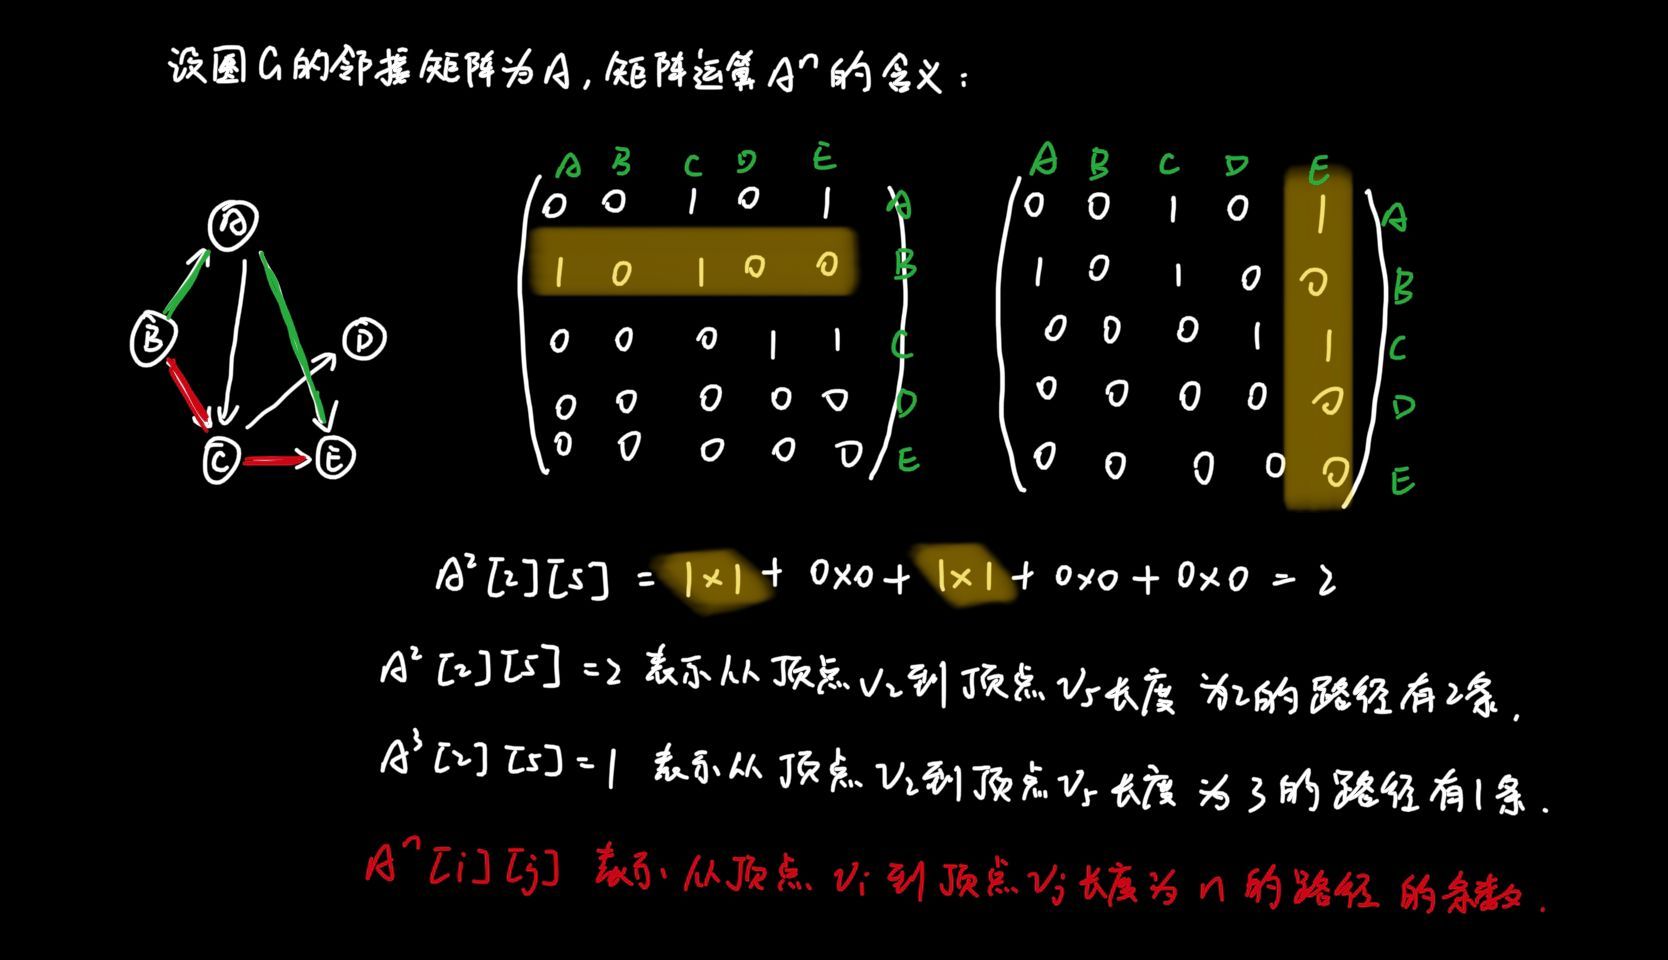 设图G的邻接矩阵为A,矩阵运算Aⁿ的含义:
A B C D E
A B C D E
A
B
D
C
E
0 0 1 0 1 A
1 0 1 0 0 B
0 0 0 1 1 C
0 0 0 0 0 D
0 0 0 0 0 E
0 0 1 0 1 A
1 0 1 0 0 B
0 0 0 1 1 C
0 0 0 0 0 D
0 0 0 0 0 E
A²[2][5] = 1×1 + 0×0 + 1×1 + 0×0 + 0×0 = 2
A²[2][5]=2 表示从顶点V₂到顶点V₅长度为2的路径有2条.
A³[2][5]=1 表示从顶点V₂到顶点V₅长度为3的路径有1条.
Aⁿ[i][j] 表示从顶点Vᵢ到顶点Vⱼ长度为n的路径的条数.